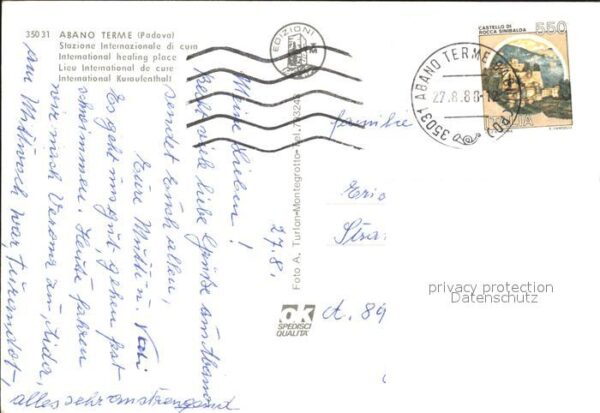 35031 ABANO TERME (Padova)
Stazione Internazionale di cura
International healing place
Lieu International de cure
International Kuraufenthalt
EDIZIONI
CASTELLO DI
ROCCA SINIBALDA
550
ITALIA
35031 ABANO TERME
27.8.88
Foto A. Turlon-Montegrotto-Tel. 793248
27.8.
Meine Lieben!
recht viele liebe Grüße aus Abano
sendet Euch allen,
Eure Mutti u. Vati
Es geht uns gut, gehen fast
schwimmen. Heute fahren
wir nach Verona an, Aida,
am Mittwoch war, Turandot,
alles sehr anstrengend
Familie
Eric
Stra
A. 89
ok
SPEDISCI
QUALITA'
privacy protection
Datenschutz